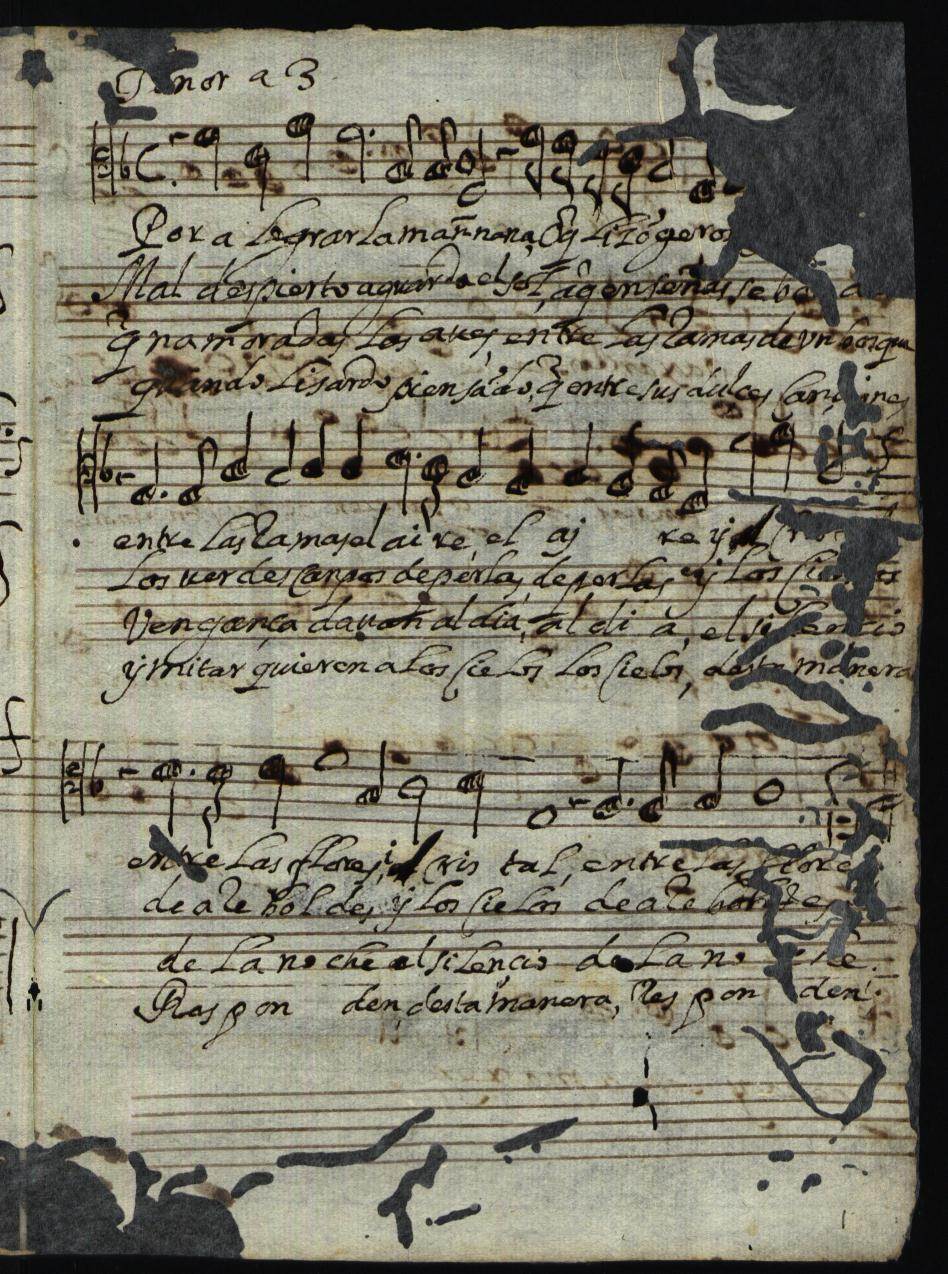 Tenor a 3
Por a legrar la mañnana, q̃ lizógeros
Mal despierto aguarda el sol, a q̃ en señas se be
q̃ namoradas las aues, entre las Ramas de vn bosque
quando Lisardo piensãdo, q̃ entre sus dulces
entre las Ramas el ai re, el aj re y el
los uerdes Canpos de perlas, de perlas y los
Vengança dauan al dia, al di a, el silencio
ymitar quieren a los Cielos los Cielos, desta manera
entre las flores, i el Cris tal, entre las flore
de a Re bol des, y los Cielos de a Re bor
de La no che el silencio de La no che.
Respon den, desta manera, Res pon den.